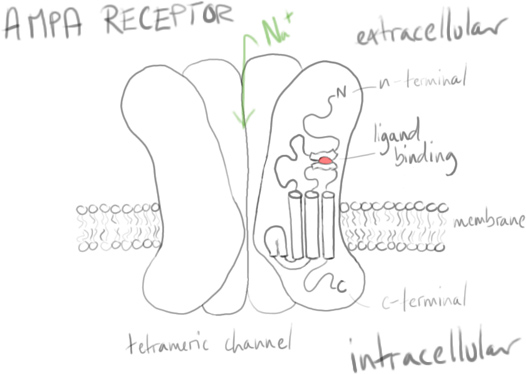 AMPA RECEPTOR
Na+
extracellular
N
n-terminal
ligand
binding
membrane
C
c-terminal
tetrameric channel
intracellular